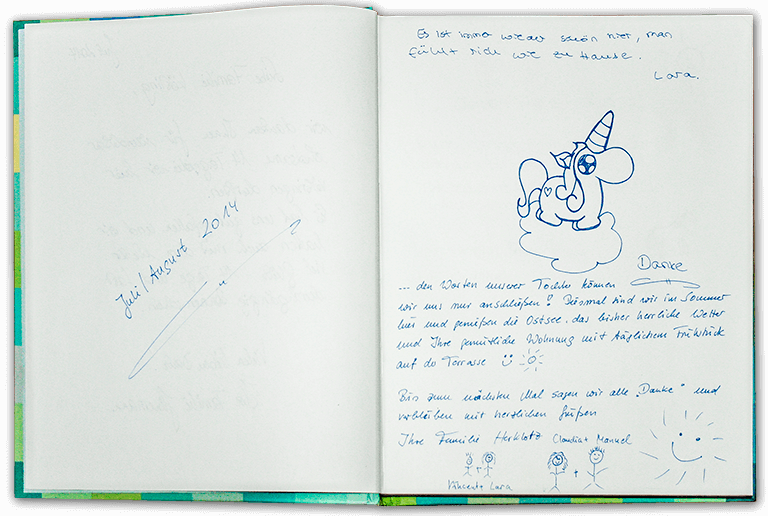 Juli/August 2014
Es ist immer wieder schön hier, man
fühlt sich wie zu Hause.
Lara.
Danke
... den Worten unserer Tochter können
wir uns nur anschließen! Diesmal sind wir im Sommer
hier und genießen die Ostsee, das bisher herrliche Wetter
und Ihre gemütliche Wohnung mit täglichem Frühstück
auf der Terrasse
Bis zum nächsten Mal sagen wir alle "Danke" und
verbleiben mit herzlichen Grüßen
Ihre Familie Herklotz Claudia + Manuel
+ +
Vincent + Lara